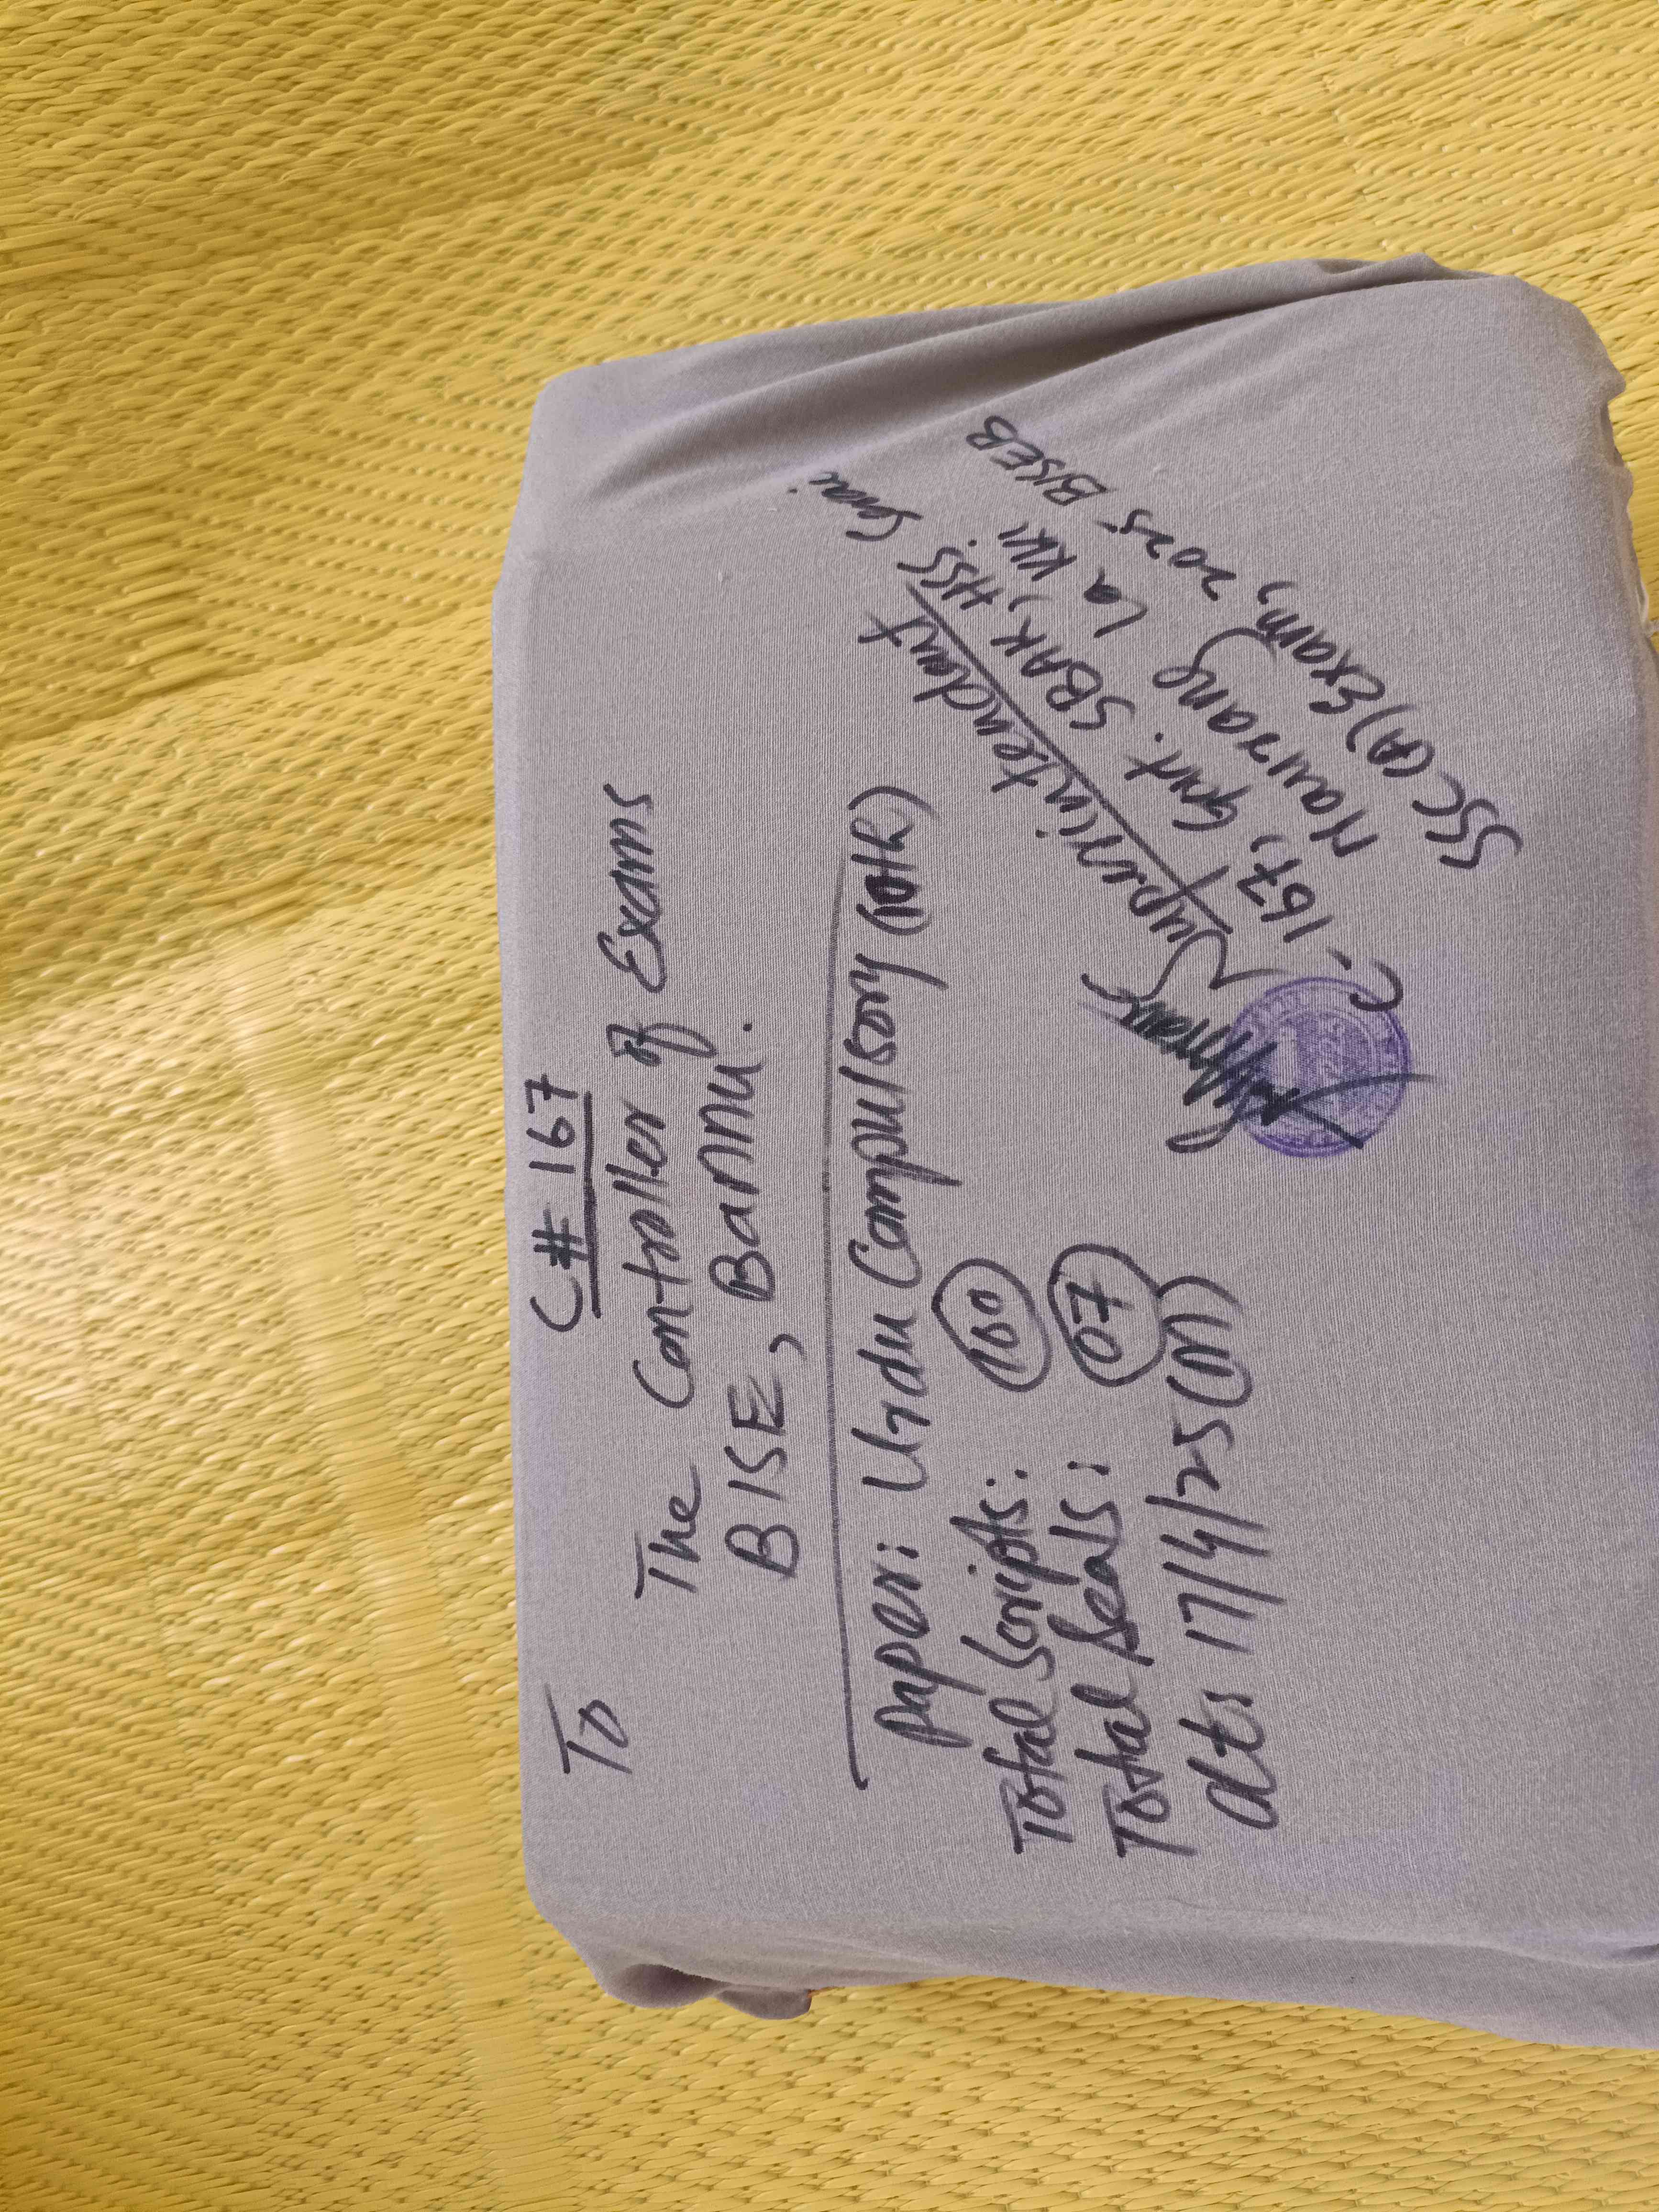 C# 167
To
The Controller of Exams
BISE, Bannu.
Paper: Urdu Compulsory (10th)
Total Scripts: 100
Total Seals: 07
dt: 17/4/25 (M)
Superintendent
C-167, Govt. SBAK, HSS Serai
Naurang Lakki
SSC(A) Exam, 2025 BISEB